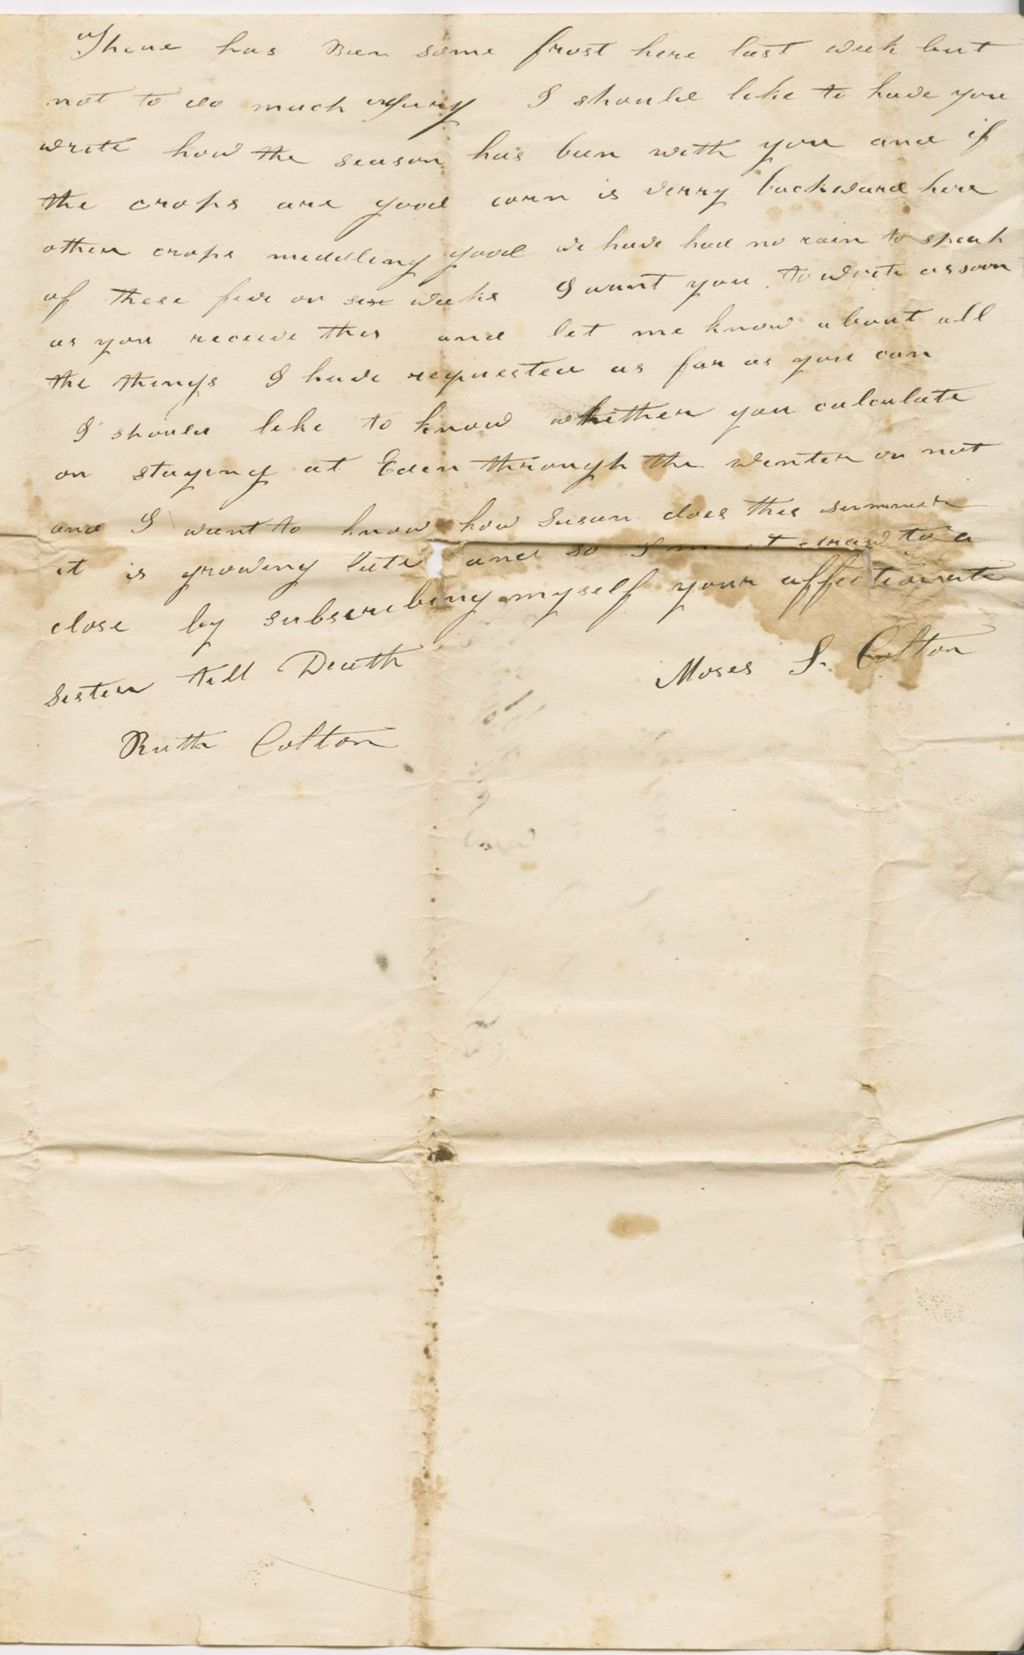 There has Been some frost here last week but
not to do much injury I should like to have you
write how the season has been with you and if
the crops are good corn is verry backward here
other crops middling good we have had no rain to speak
of these five or six weeks I want you to write as soon
as you receive this and let me know about all
the things I have requested as far as you can
I should like to know whither you calculate
on staying at Eden through the winter or not
and I want to know how Susan does this summer
it is growing late and so I must draw to a
close by subscribing myself your affectionate
Sister till Death Moses S. Colton
Ruth Colton